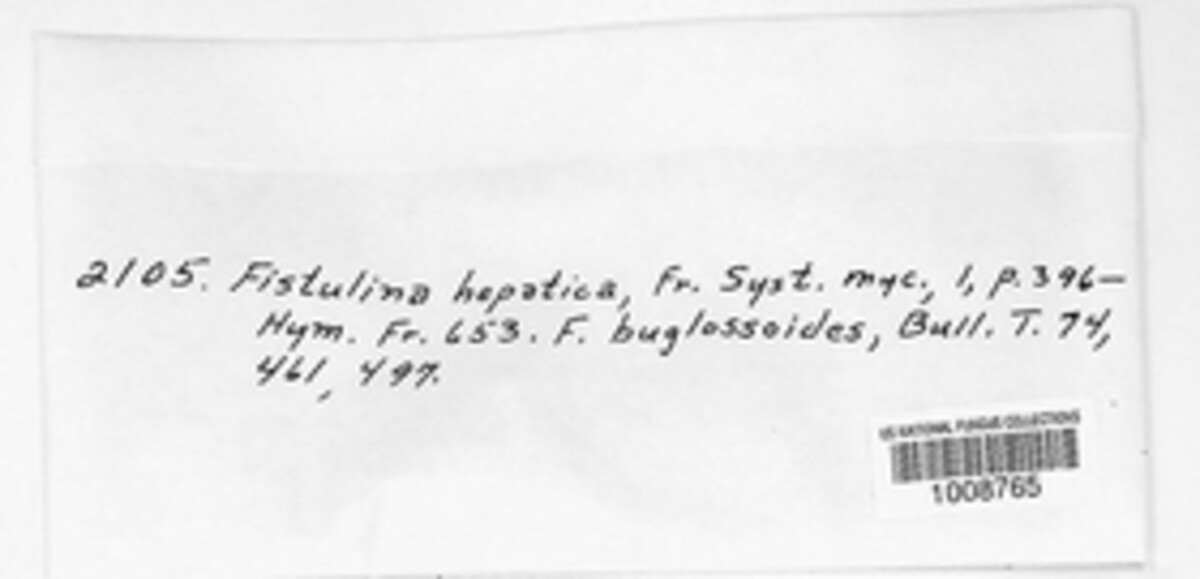 2105. Fistulina hepatica, Fr. Syst. myc., 1, p. 396—
Hym. Fr. 653. F. buglossoides, Bull. T. 74,
461, 497.
US NATIONAL FUNGUS COLLECTIONS
1008765